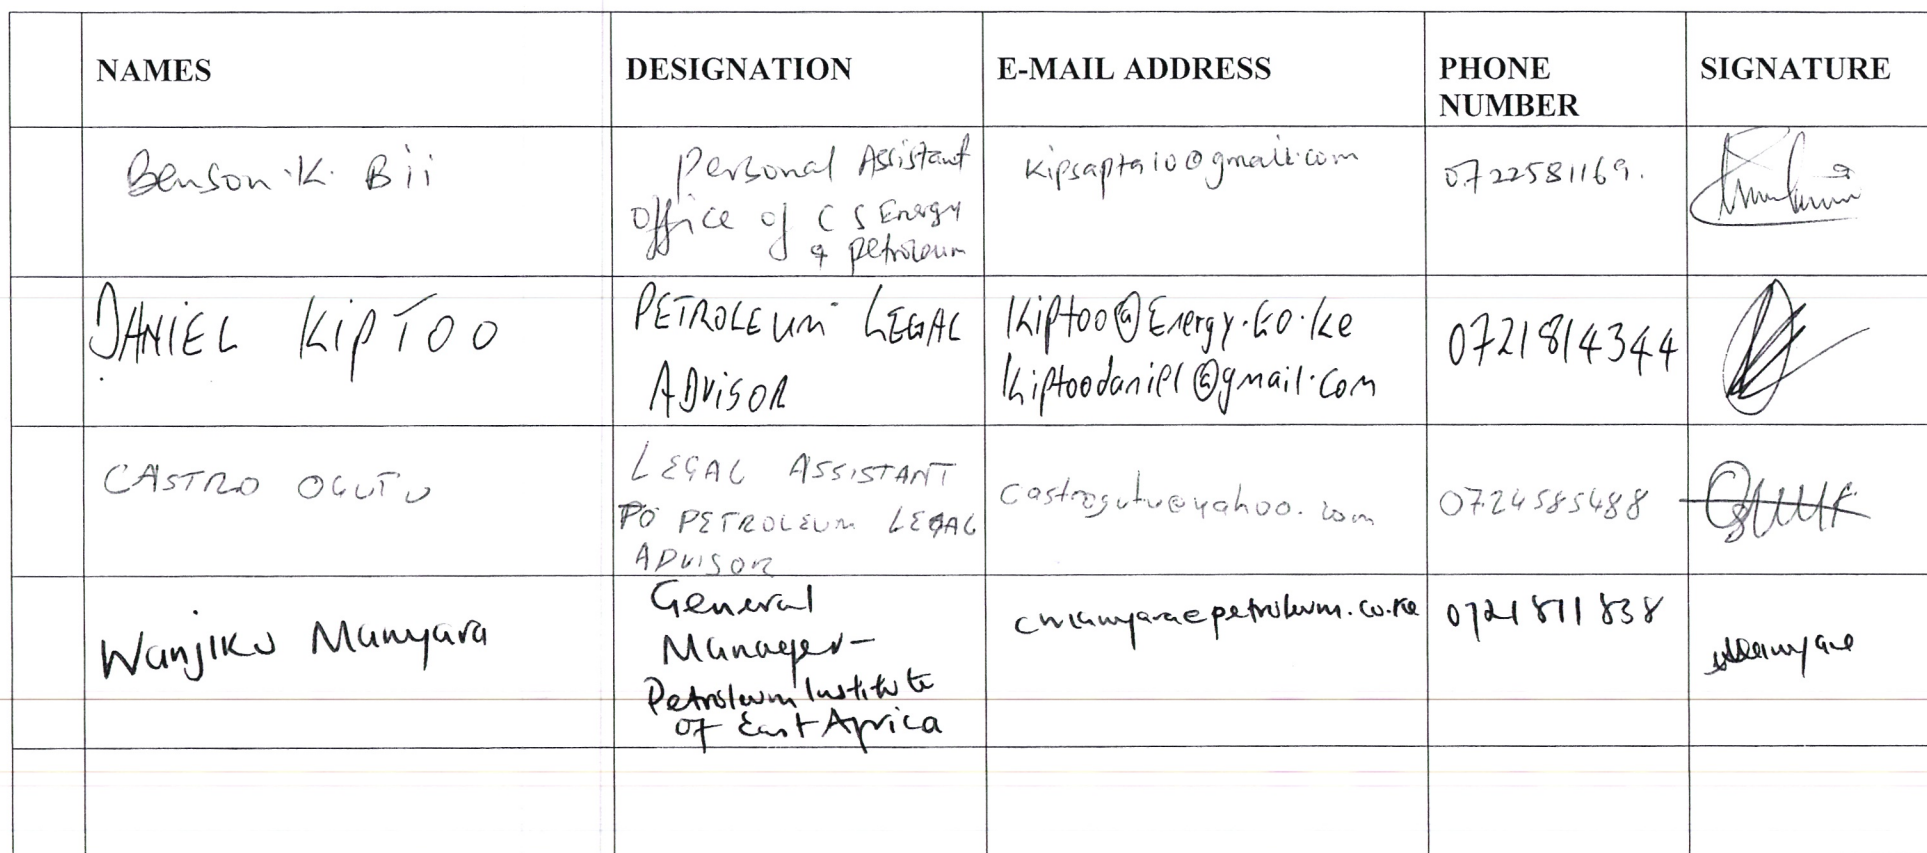 NAMES
DESIGNATION
E-MAIL ADDRESS
PHONE
NUMBER
SIGNATURE
Benson .K. Bii
Personal Assistant
office of CS Energy
& petroleum
0722581169.
DANIEL KIPTOO
PETROLEUM LEGAL
ADVISOR
Kiptoo@Energy.Go.Ke
Kiptoodaniel@gmail.com
0721814344
CASTRO OGUTU
LEGAL ASSISTANT
TO PETROLEUM LEGAL
ADVISOR
castrogutu@yahoo.com
0724585488
Wanjiku Manyara
General
Manager-
Petroleum Institute
of East Africa
0721811838